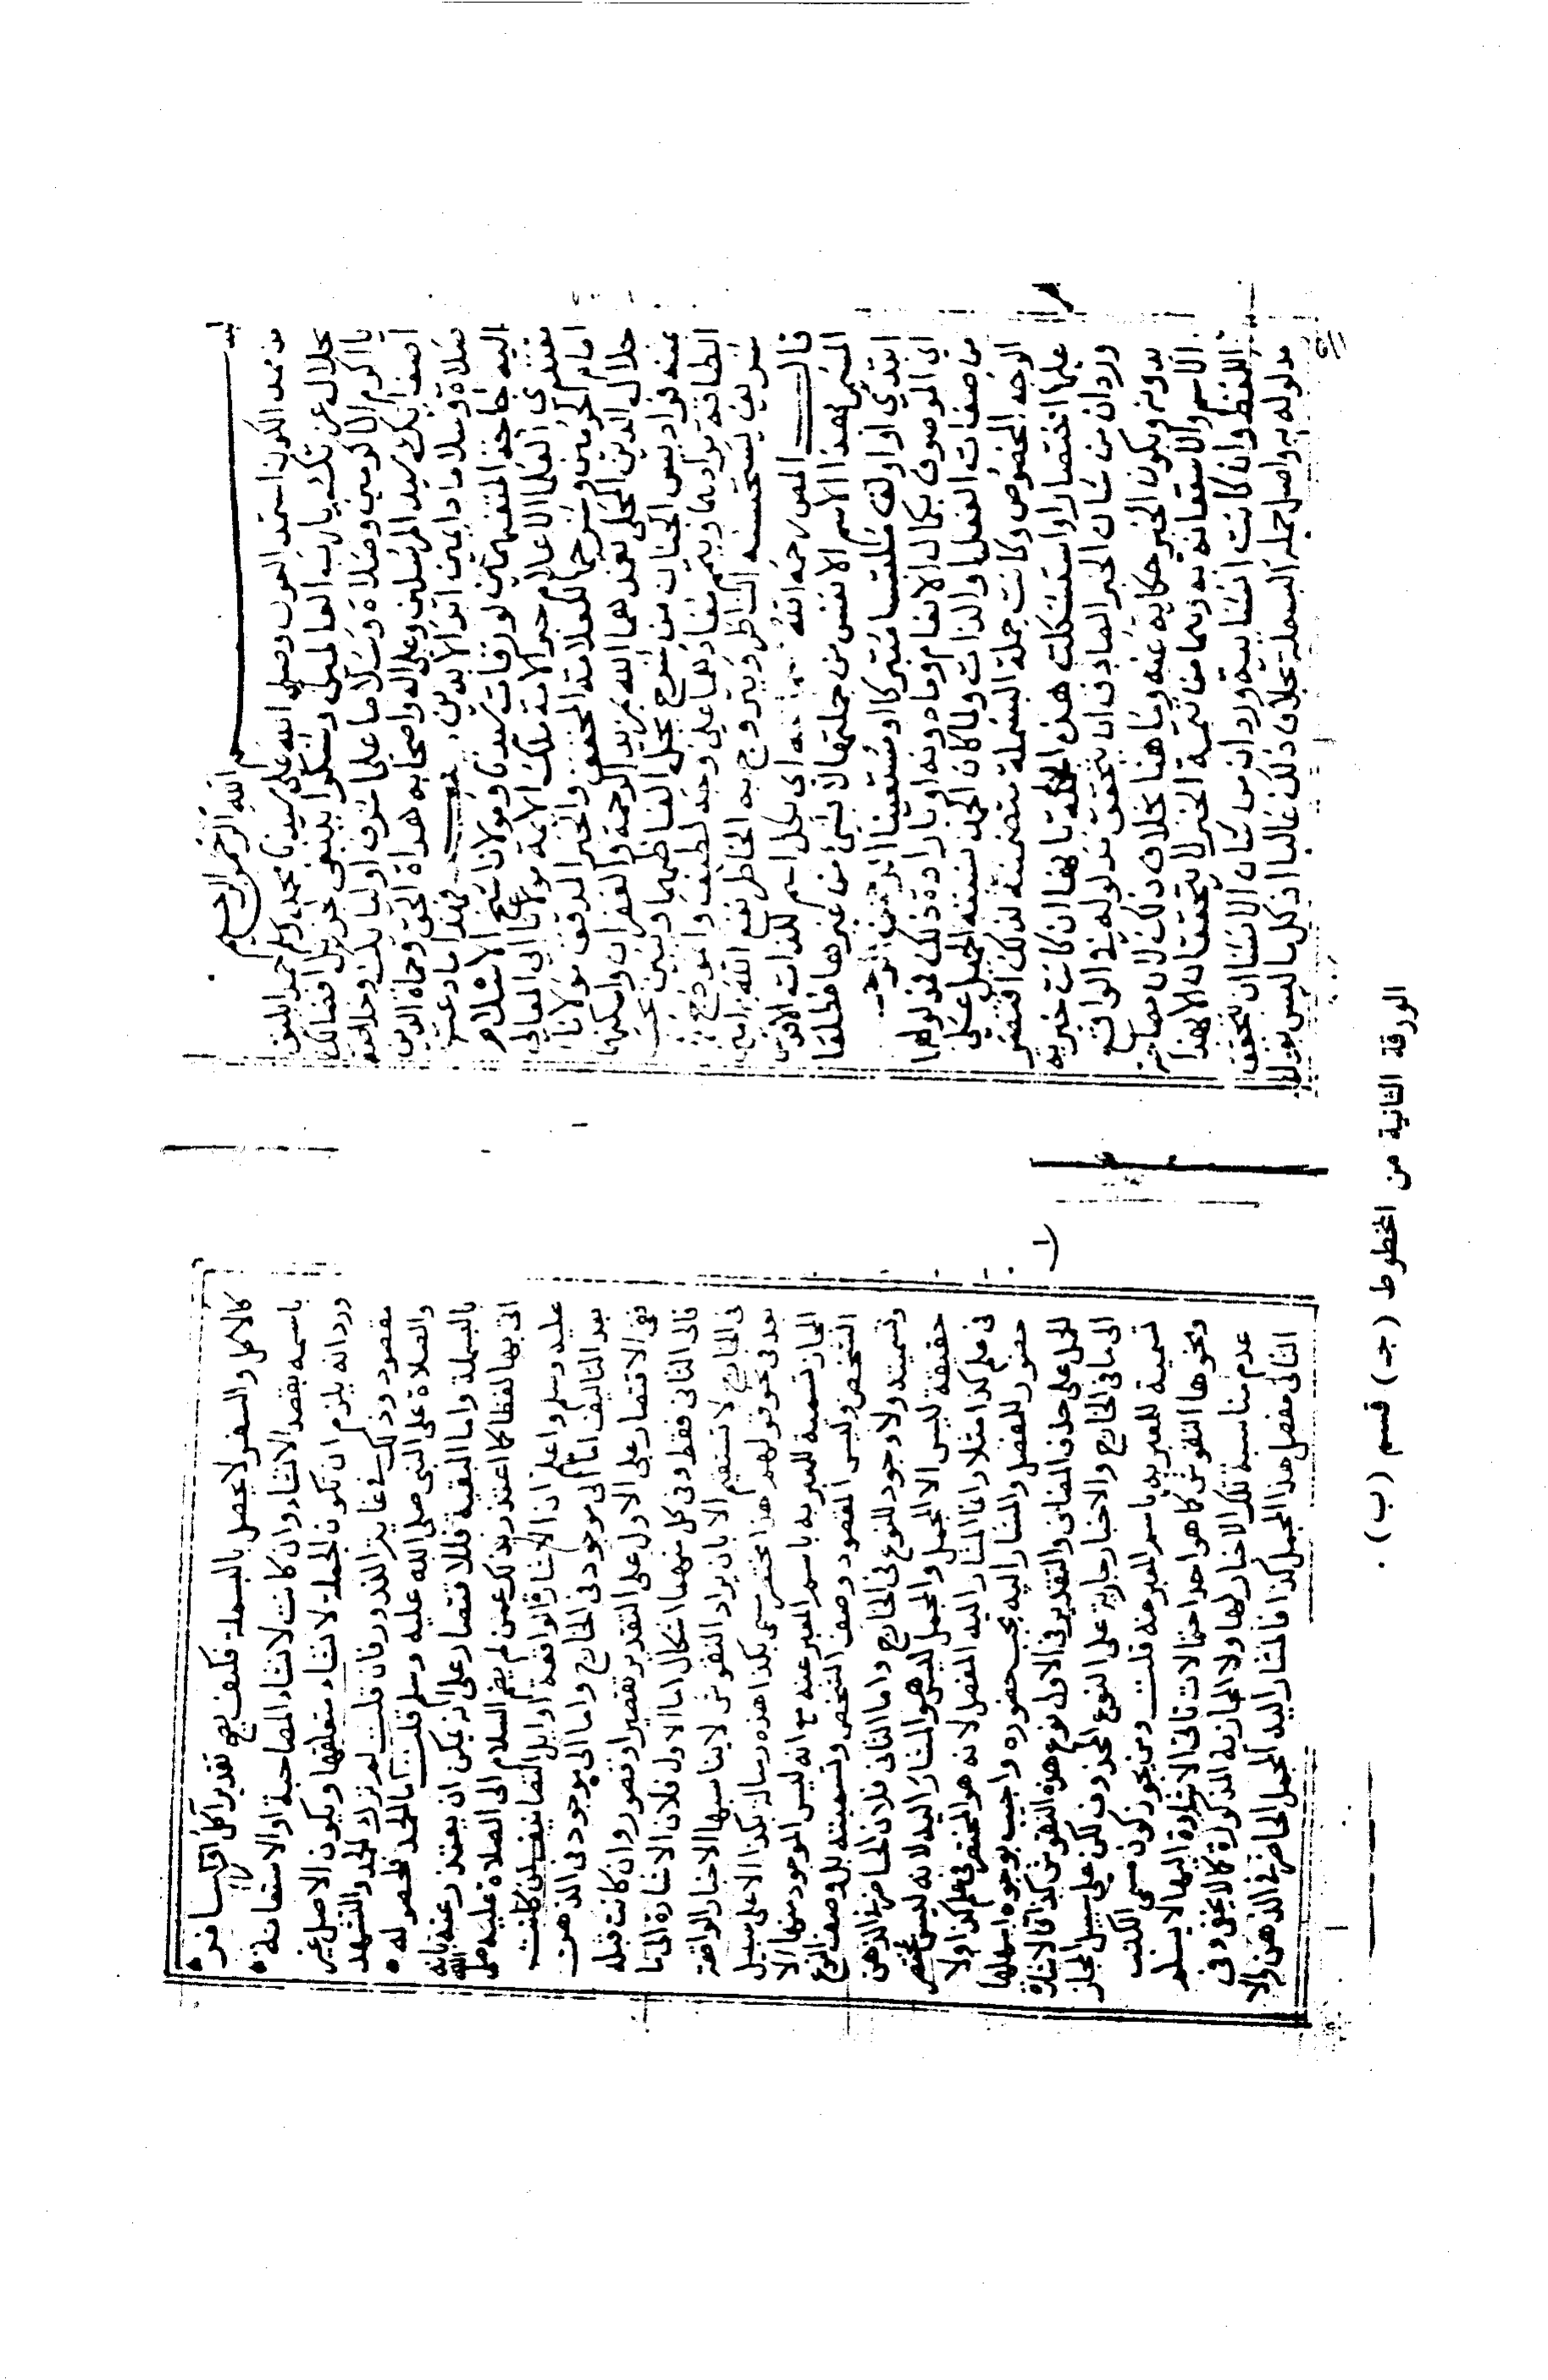 الله الرحمن الرحيم
من ممد الكون استمد العون وصلى الله على سيدنا محمد وسلم حمدا يليق
بجلال عزتك يا رب العالمين وشكرا ينبغي لجزيل افضالك
يا اكرم الاكرمين وصلاة وسلاما على اشرف اوليائك وخلاصة
اصفيائك سيد المرسلين وعلى اله واصحابه هداة الحق وحماة الدين
صلاة وسلاما دايمين ابد الابدين فهذا ما دعت
اليه حاجة المتفهمين لورقات سيدنا ومولانا شيخ الاسلام
مقتدى العلما الاعلام حبر الامة ملك الائمة مولانا ابي المعالي
امام الحرمين وشرحها للعلامة المحقق والحبر المدقق مولانا
جلال الدين المحلي تغمدهما الله بمزيد الرحمة والغفران واسكنهما
بمنه فراديس الجنان من شرح يحل الفاظهما ويبين بحسب
الطاقة مرادهما ويتمم مفادهما على وجه لطيف وانموذج
شريف يستحسنه الناظر ويتروج به الخاطر نفع الله به امين
قال المص رحمه الله اى بكل اسم للذات الاقدس
المسمى بهذا الاسم الانفس من جملتها لا بشئ من غيرها مطلقا
ابتدي او اولف متلبسا متبركا او مستعينا الرحمن الرحيم
اي الموصوف بكمال الانعام وما دونه او بارادة ذلك فمدلولها
من صفات الفعل او الذات ولما كان الحمد نسبته الجميل على
الوجه المخصوص وكانت جملة البسملة متضمنة لذلك اقتصر
عليها اختصارا واستشكلت هذه الجملة بانها ان كانت خبرية
ورد ان من شان الخبر الصادق ان يتحقق مدلوله في الواقع
بدونه ويكون الخبر حكاية عنه وما هنا بخلاف ذلك لان مصاحبة
الاسم والاستعانة به وهما من تتمة الخبر لا يتحققان الا بهذا
اللفظ وان كانت انشائية ورد ان من شان الانشا ان يتحقق
مدلوله به واصل جملة البسملة بخلاف ذلك غالبا اذ كل ما ليس بقول
كالاكل والسفر لا يحصل بالبسملة فكيف يصح تقدير اكل اقرا اسافر
باسمه بقصد الانشاء وان كانت لانشاء المصاحبة او الاستعانة
ورد انه يلزم ان تكون الجملة لانشاء متعلقها ويكون الاصل غير
مقصود وذلك في غاية الندور فان قلت لم ترك الحمد والتشهد
والصلاة على النبي صلى الله عليه وسلم قلت اما الحمد فلحصوله
بالبسملة واما البقية فللاقتصار على انه يمكن ان يعتذر عنه بانه
اتى بها لفظا كما اعتذر بذلك عمن لم يضم السلام الى الصلاة عليه صلى الله
عليه وسلم واعلم ان الاشارة الواقعة اوايل التصانيف ان كانت
بعد التاليف اما الى موجود في الخارج واما الى موجود في الذهن
ففي الاقتصار على الاول على التقدير تقصير او قصور وان كانت قبله
فالى الثاني فقط وفى كل منهما اشكال اما الاول فلان الاشارة الى ما
فى الخارج لا تستقيم الا بان يراد النقوش لا يناسبها الاخبار الواقعة
بعد فى نحو قولهم هذا مختصر يسمى بكذا هذه رسالة بكذا الا على سبيل
المجاز تسمية للمعبر به باسم المعبر عنه مع انه ليس الموجود منها الا
الشخص وليس المقصود وصف الشخص وتسميته بل وصف النوع
وتسميته ولا وجود للنوع فى الخارج واما الثاني فلان الحاضر فى الذهن
حقيقة ليس الا المجمل والمجمل ليس هو المشار اليه لانه ليس مختصر
فى علم كذا مثلا وانما المشار اليه المفصل لانه هو المختصر فى علم كذا ولا
حضور للمفصل والمشار اليه يجب حضوره واجيب بوجوه اسهلها
الحمل على حذف المضاف والتقدير فى الاول نوع هذه النقوش كذا فالاشارة
الى ما فى الخارج والاخبار جارية على النوع المحذوف لكن على سبيل المجاز
تسمية للمعبر به باسم المعبر عنه قلت ومن يجوز كون مسمى الكتب
ونحوها النقوش كما هو احد احتمالات تاتي الاشارة اليها لا يسلم
عدم مناسبة تلك الاخبار لها ولا المجازية المذكورة كما لا يخفى وفى
الثاني مفصل هذا المجمل كذا فالمشار اليه المجمل الحاضر فى الذهن والا
الورقة الثانية من المخطوط (جـ) قسم (ب) .